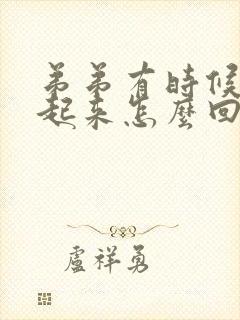 弟弟有時候
起来怎麼回
盧祥勇